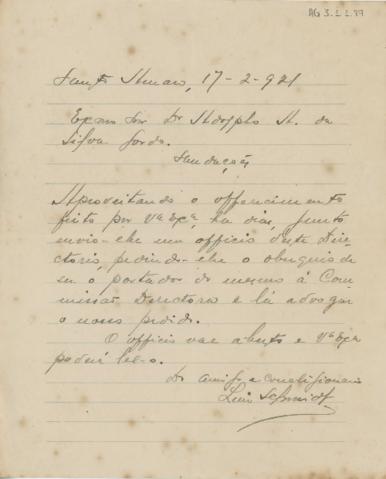 AG 3.1.1.99
Santo Amaro, 17-2-921
Exmo Snr Dr Adolpho A. da
Silva Gordo.
Saudações
Aproveitando o offerecimento
feito por Vª Exª, ha dias, junto
envio-lhe um officio deste Dire-
ctorio, pedindo-lhe o obsequio de
ser o portador do mesmo á Com
missão Directora e lá advogar
o nosso pedido.
O officio vae aberto e Vª Exª
poderá lel-o.
Do amigo e correligionario
Luis Schmidt